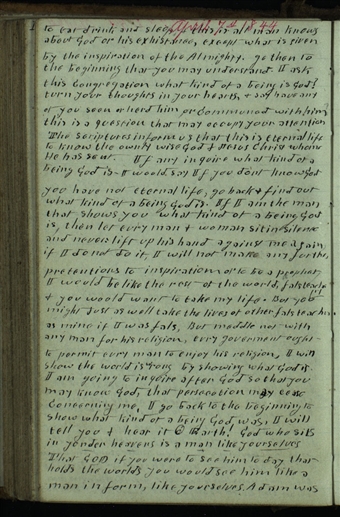 April 7th 1844
to eat drink and sleep. this is all man knows
about God or his exhistance, except what is given
by the inspiration of the Almighty. go then to
the beginning that you may understand. I ask
this Congregation what kind of a being is God?
turn your thoughts in your hearts, & say have any
of you seen or herd him or Communed with him
this is a question that may occupy your attention
The Scriptures inform us that this is eternal life
to know the ownly wise God & Jesus Christ whom
He has sent. If any inquire what kind of a
being God is. I would say If you dont know God
you have not eternal life, go back & find out
what kind of a being God is. If I am the man
that shows you what kind of a being God
is, then let evry man & woman sit in silence
and never lift up his hand against me again
if I do not do it, I will not make any further
pretentions to inspiration or to be a prophet
I would be like the rest of the world,
& you would want to take my life. But you
might just as well take the lives of other fals teachers
as mine if I was fals, But meddle not with
any man for his religion, evry goverment ought
to permit evry man to enjoy his religion, I will
show the world is wrong by showing what God is.
I am going to inquire after God so that you
may know God, that persecution may cease
Concerning me, I go back to the beginning to
show what kind of a being God was, I will
tell you & hear it O Earth, God who sits
in yonder heavens is a man like yourselves
That GOD if you were to see him to day that
holds the worlds you would see him like a
man in form, like yourselves. Adam was